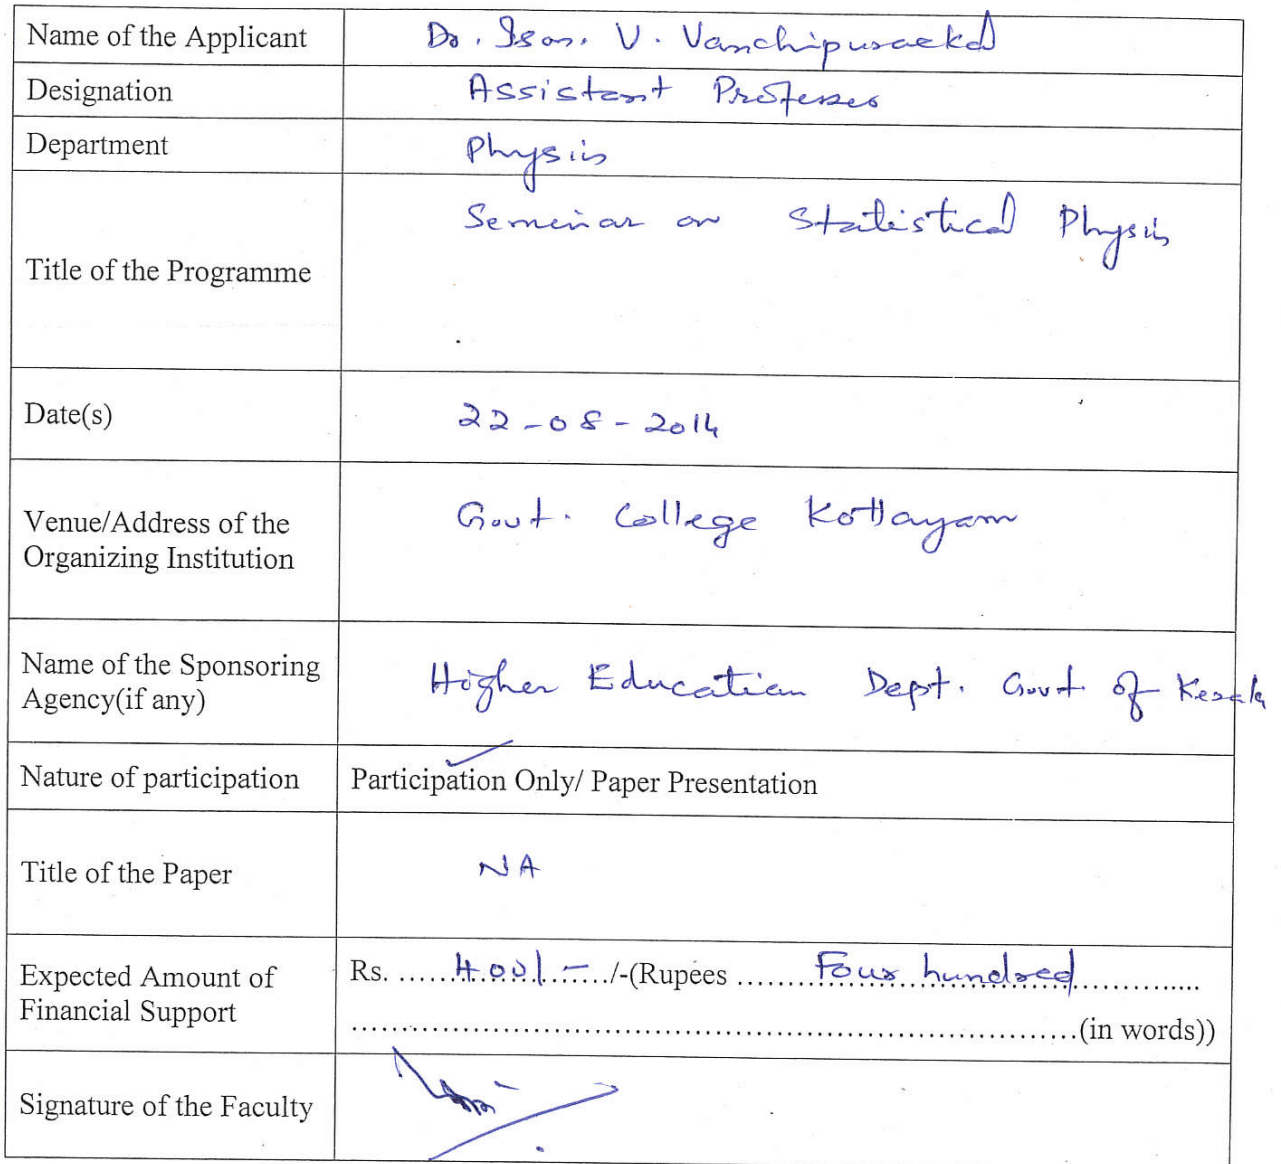 Name of the Applicant Dr. Ison. V. Vanchipurackal
Designation Assistant Professor
Department Physics
Title of the Programme Seminar on Statistical Physics
Date(s) 22-08-2014
Venue/Address of the
Organizing Institution Govt. College Kottayam
Name of the Sponsoring
Agency(if any) Higher Education Dept. Govt of Kerala
Nature of participation Participation Only/ Paper Presentation
Title of the Paper NA
Expected Amount of
Financial Support Rs. ......400/-....../-(Rupees ......Four hundred......
......(in words))
Signature of the Faculty